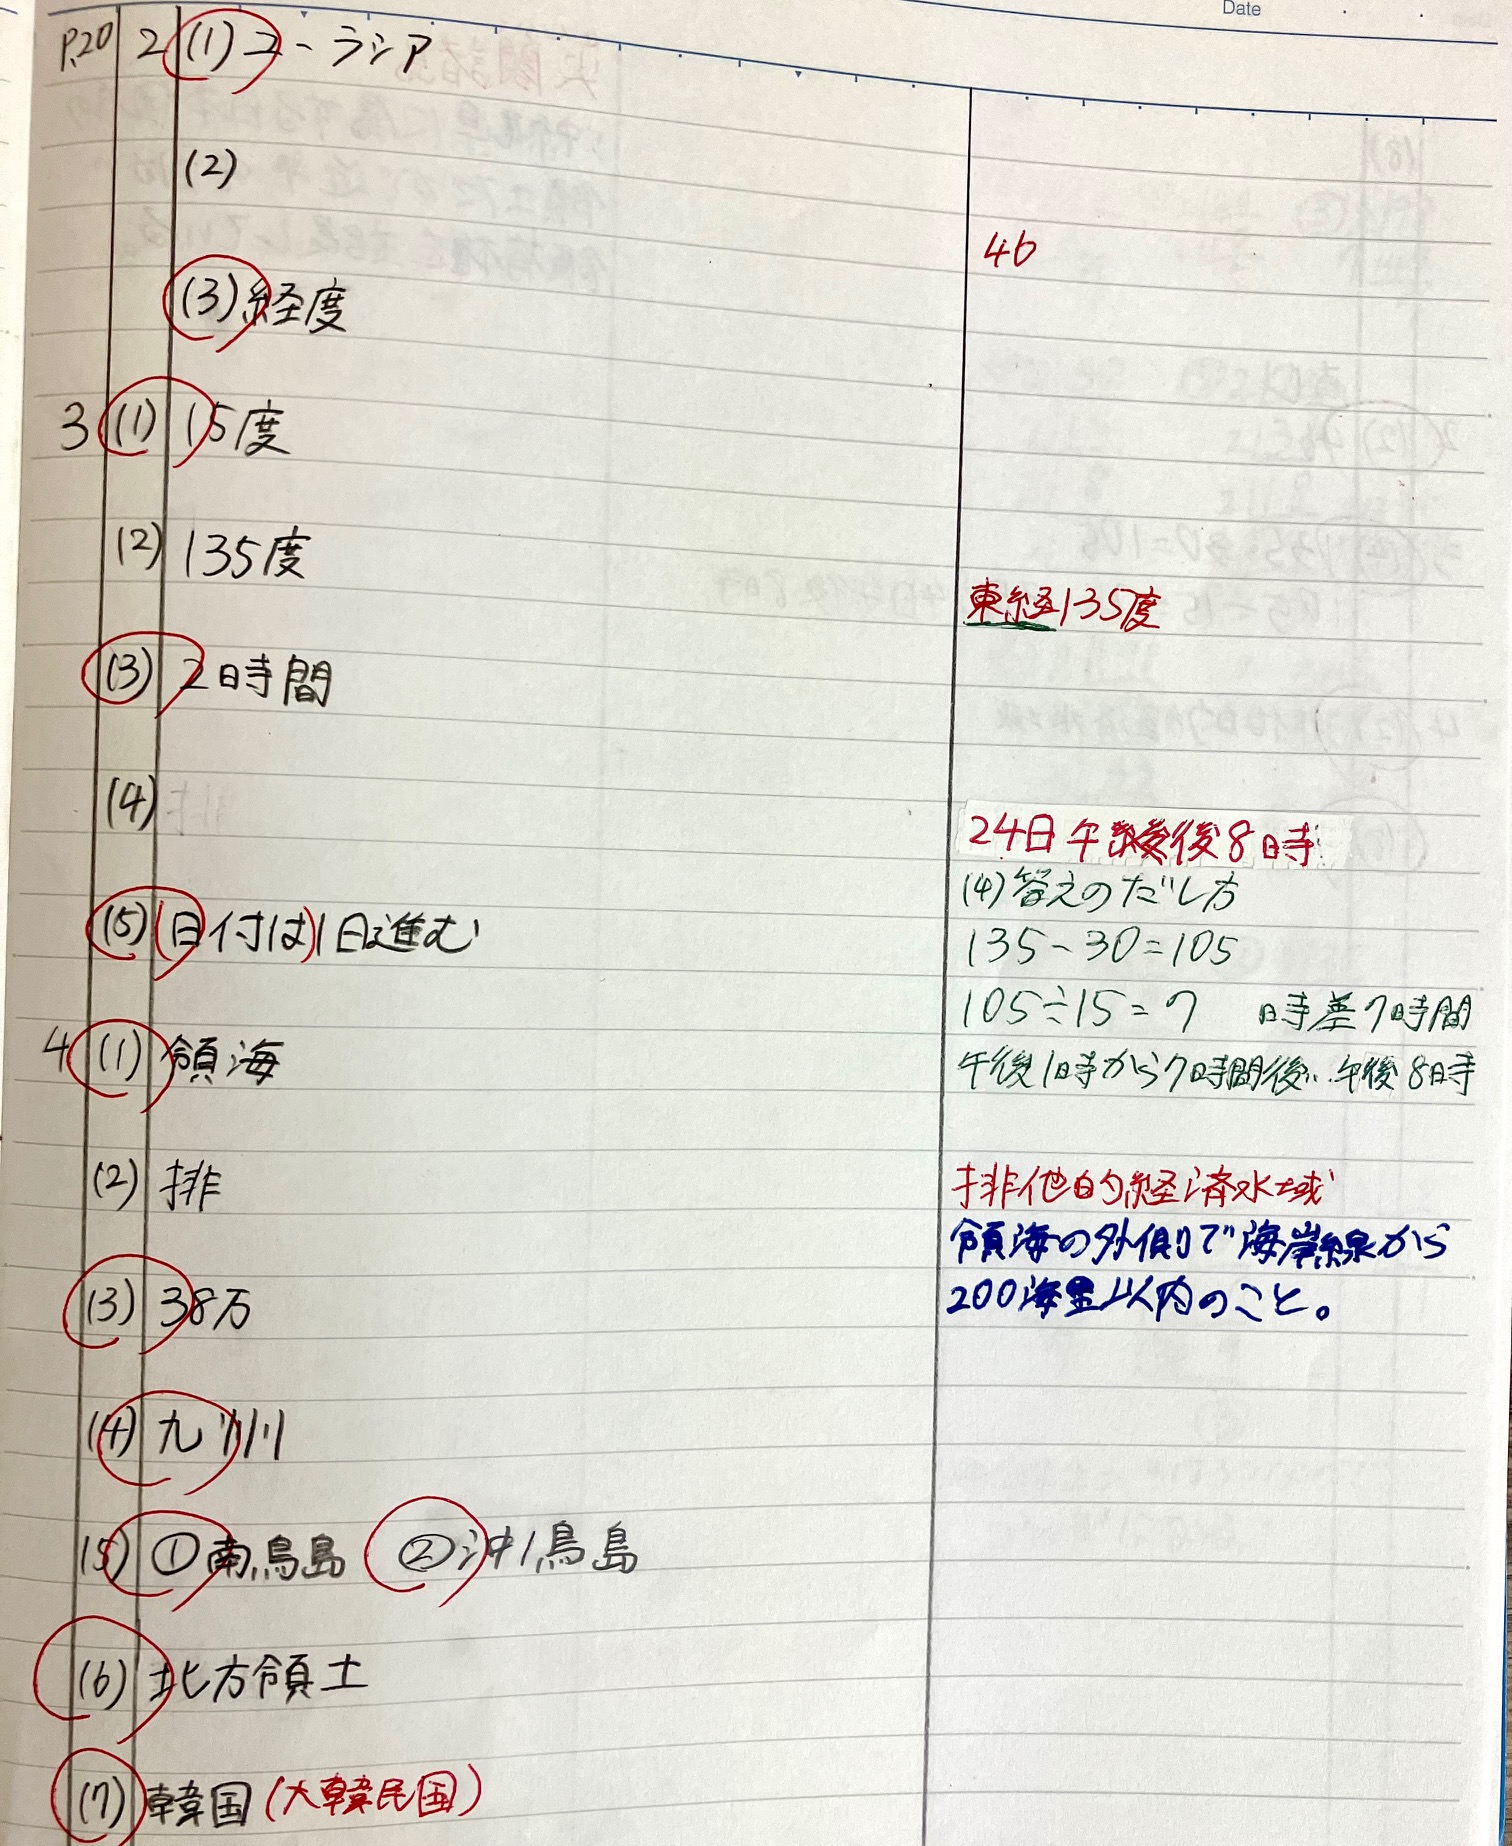 Date
P.20 2 (1) ユーラシア
(2)
46
(3) 経度
3 (1) 15度
(2) 135度
東経135度
(3) 2時間
(4)
24日午後8時
(4)答えのだし方
(5) (日付は)1日進む
135-30=105
105÷15=7 時差7時間
4 (1) 領海
午後1時から7時間後…午後8時
(2) 排
排他的経済水域
領海の外側で海岸線から
200海里以内のこと。
(3) 38万
(4) 九州
(5) ①南鳥島 ②沖ノ鳥島
(6) 北方領土
(7) 韓国(大韓民国)